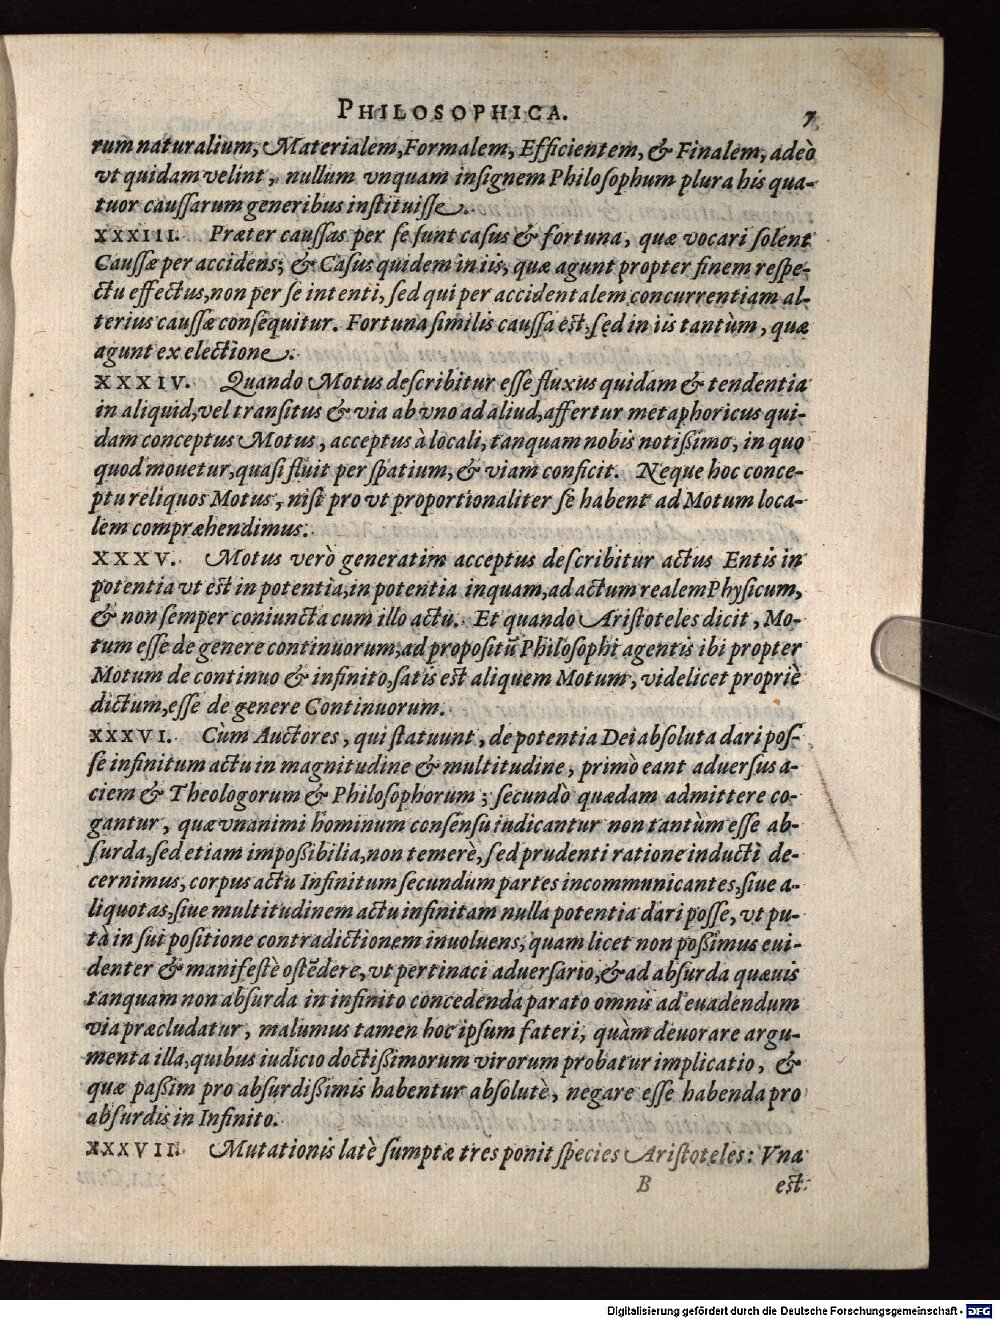 PHILOSOPHICA. 7
rum naturalium, Materialem, Formalem, Efficientem, & Finalem, adeò
vt quidam velint, nullum vnquam inſignem Philoſophum plura his qua-
tuor cauſſarum generibus inſtituiſſe.
XXXIII. Præter cauſſas per ſe ſunt caſus & fortuna, quæ vocari ſolent
Cauſſæ per accidens; & Caſus quidem in iis, quæ agunt propter finem reſpe-
ctu effectus, non per ſe intenti, ſed qui per accidentalem concurrentiam al-
terius cauſſæ conſequitur. Fortuna ſimilis cauſſa eſt, ſed in iis tantùm, quæ
agunt ex electione.
XXXIV. Quando Motus deſcribitur eſſe fluxus quidam & tendentia
in aliquid, vel tranſitus & via ab vno ad aliud, affertur metaphoricus qui-
dam conceptus Motus, acceptus à locali, tanquam nobis notißimo, in quo
quod mouetur, quaſi fluit per ſpatium, & viam conficit. Neque hoc conce-
ptu reliquos Motus, niſi pro vt proportionaliter ſe habent ad Motum loca-
lem compræhendimus.
XXXV. Motus verò generatim acceptus deſcribitur actus Entis in
potentia vt eſt in potentia, in potentia inquam, ad actum realem Phyſicum,
& non ſemper coniuncta cum illo actu. Et quando Ariſtoteles dicit, Mo-
tum eſſe de genere continuorum, ad propoſitũ Philoſophi agentis ibi propter
Motum de continuo & infinito, ſatis eſt aliquem Motum, videlicet propriè
dictum, eſſe de genere Continuorum.
XXXVI. Cùm Auctores, qui ſtatuunt, de potentia Dei abſoluta dari poſ-
ſe infinitum actu in magnitudine & multitudine, primò eant aduerſus a-
ciem & Theologorum & Philoſophorum; ſecundo quædam admittere co-
gantur, quæ vnanimi hominum conſenſu iudicantur non tantùm eſſe ab-
ſurda, ſed etiam impoßibilia, non temerè, ſed prudenti ratione inducti de-
cernimus, corpus actu Infinitum ſecundum partes incommunicantes, ſiue a-
liquotas, ſiue multitudinem actu infinitam nulla potentia dari poſſe, vt pu-
tà in ſui poſitione contradictionem inuoluens, quam licet non poßimus eui-
denter & manifeſtè oſtẽdere, vt pertinaci aduerſario, & ad abſurda quæuis
tanquam non abſurda in infinito concedenda parato omnis ad euadendum
via præcludatur, malumus tamen hoc ipſum fateri, quàm deuorare argu-
menta illa, quibus iudicio doctißimorum virorum probatur implicatio, &
quæ paßim pro abſurdißimis habentur abſolutè, negare eſſe habenda pro
abſurdis in Infinito.
XXXVII. Mutationis latè ſumptæ tres ponit ſpecies Ariſtoteles: Vna
B est
Digitalisierung gefördert durch die Deutsche Forschungsgemeinschaft - DFG